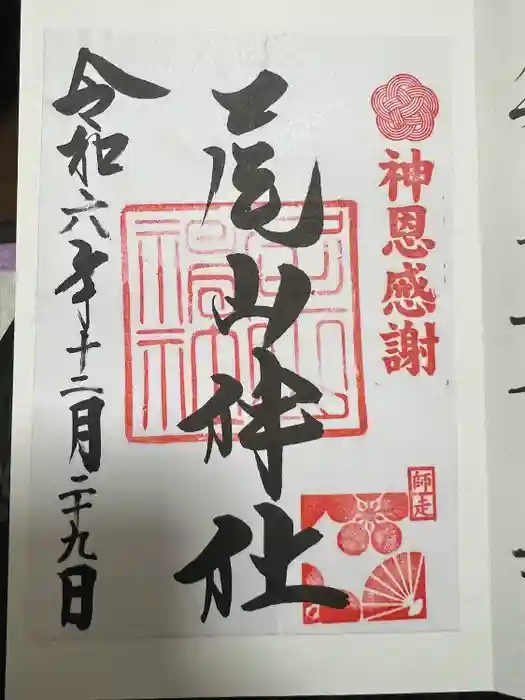 神恩感謝
師走
尾山神社
令和六年十二月二十九日